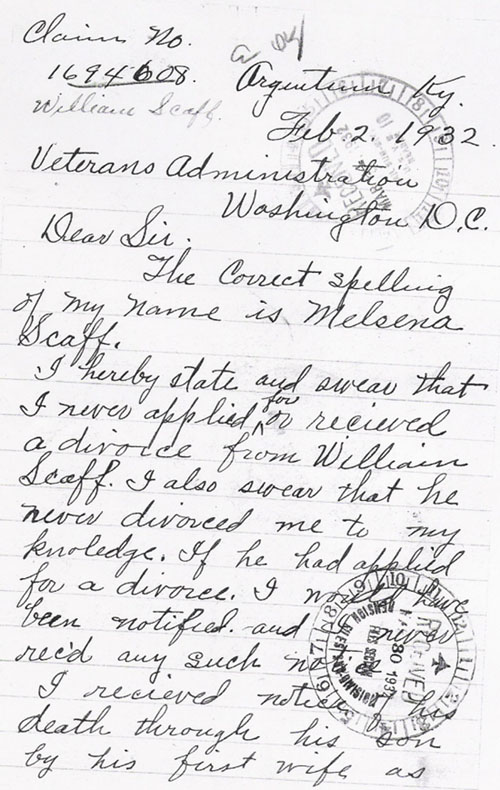 Claim No.
1694608.
a ok
William Scaff
Argentum Ky.
Feb 2. 1932.
Veterans Administration
Washington D.C.
Dear Sir.
The Correct spelling
of my name is Melsena
Scaff.
I hereby state and swear that
for
I never applied or recieved
a divorce from William
Scaff. I also swear that he
never divorced me to my
knoledge. If he had applied
for a divorce. I would have
been notified. and I never
rec'd any such notice
I recieved notice of his
death through his son
by his first wife as
RECEIVED